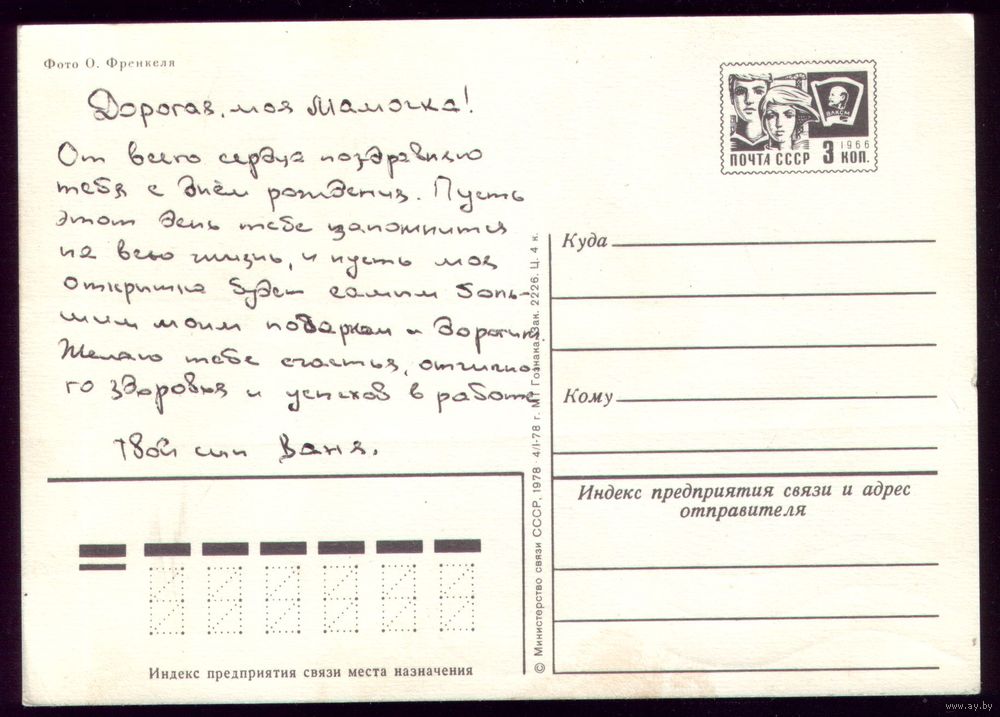 Фото О. Френкеля
Дорогая, моя Мамочка!
От всего сердца поздравляю
тебя с днём рождения. Пусть
этот день тебе запомнится
на всю жизнь, и пусть моя
открытка будет самим боль-
шим моим подарком и дорогим.
Желаю тебе счастья, отлично-
го здоровья и успехов в работе
твой сын Ваня.
ВЛКСМ
1966
ПОЧТА СССР 3 КОП.
Куда
Кому
Индекс предприятия связи и адрес
отправителя
© Министерство связи СССР, 1978 · 4/I-78 г. МТ Гознака. Зак. 2226. Ц. 4 к.
Индекс предприятия связи места назначения
www.ay.by